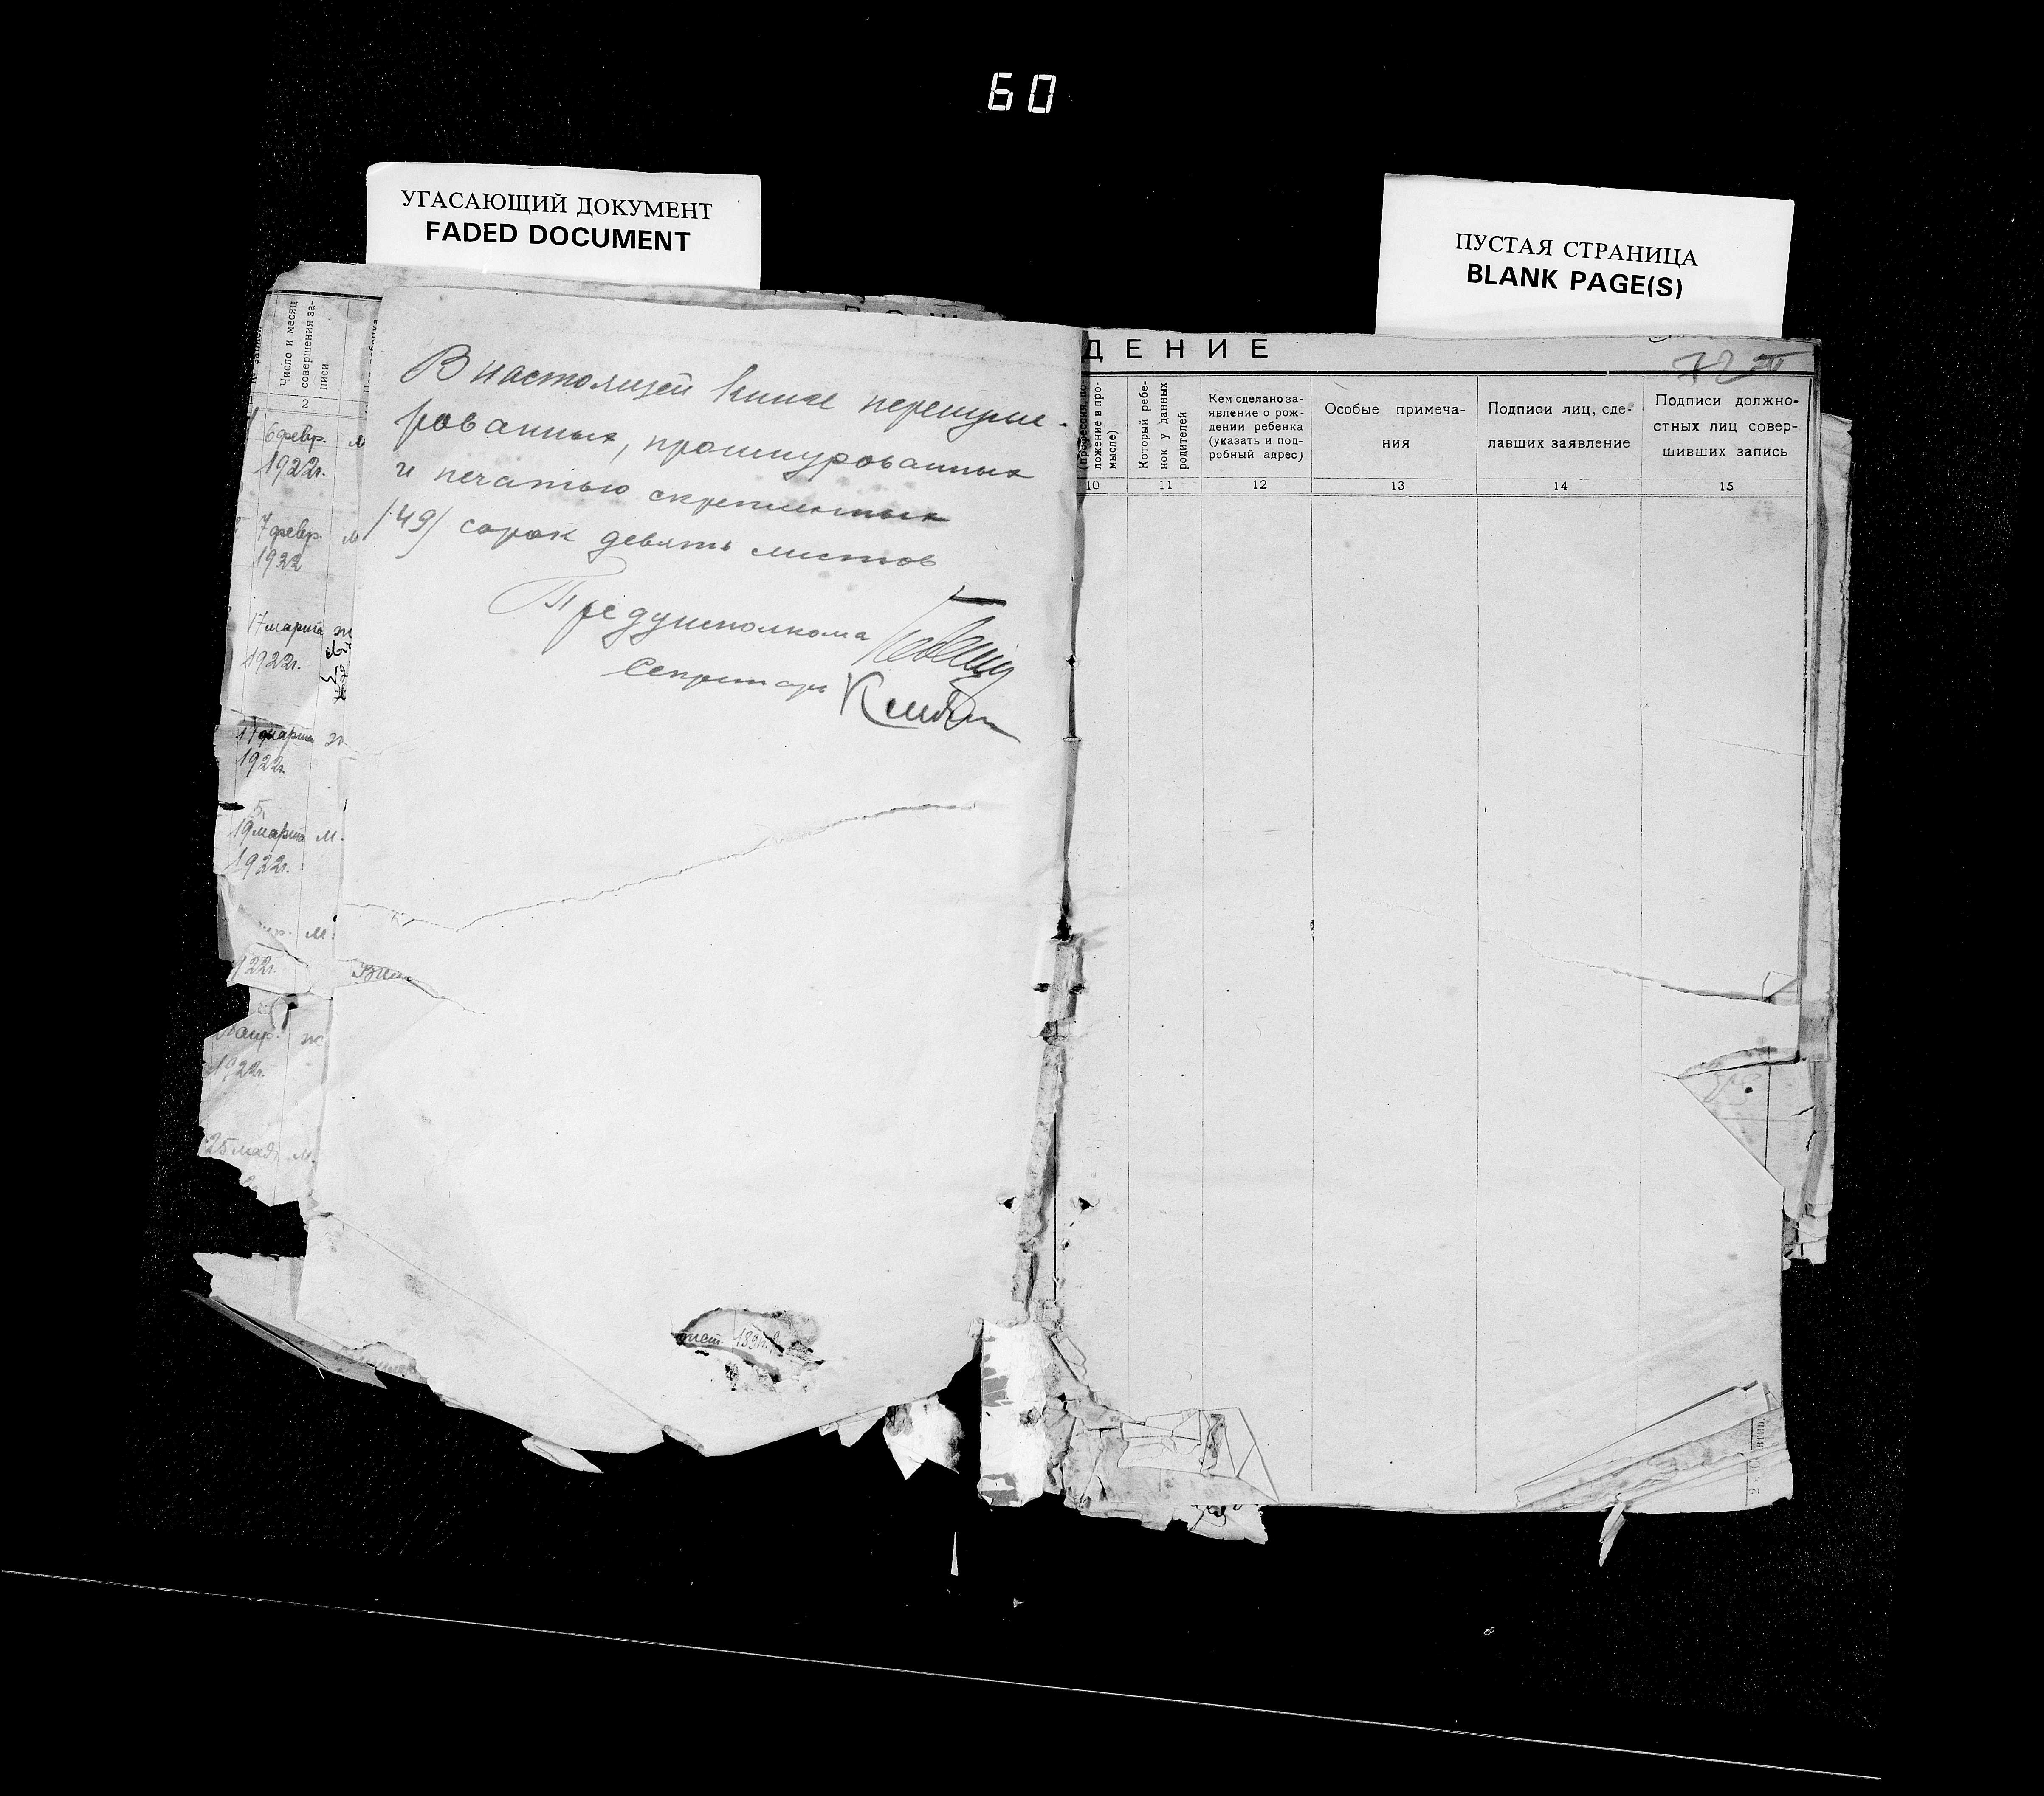 60
УГАСАЮЩИЙ ДОКУМЕНТ
FADED DOCUMENT
ПУСТАЯ СТРАНИЦА
BLANK PAGE(S)
Число и месяц
совершения за-
писи
2
6 февр. м
1922г.
7 февр. м
1922
17 марта ж
1922г.
17 марта ж
1922г.
19 марта м.
1922г.
м.
122г.
ж
1922г.
25 мая м.
В настоящей книге перенуме-
рованных, прошнурованных
и печатью скрепленных
/49/ сорок девять листов
Предуисполкома
Секретарь
ДЕНИЕ
ложение в про-
мысле)
10
Который ребе-
нок у данных
родителей
11
Кем сделано за-
явление о рож-
дении ребенка
(указать и под-
робный адрес)
12
Особые примеча-
ния
13
Подписи лиц, сде-
лавших заявление
14
Подписи должно-
стных лиц совер-
шивших запись
15